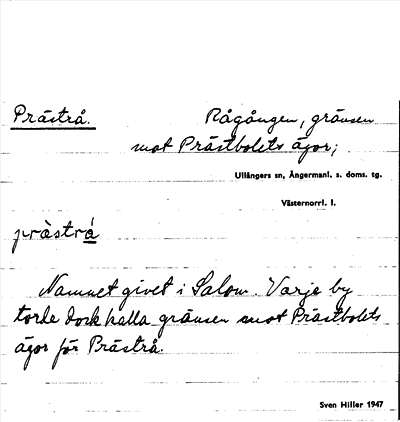 Prästrå. Rågången, gränsen
mot Prästbolets ägor;
Ullångers sn, Ångermanl. s. doms. tg.
Västernorrl. l.
prästrå
Namnet givet i Salom. Varje by
torde dock kalla gränsen mot Prästbolets
ägor för Prästrå.
Sven Hiller 1947